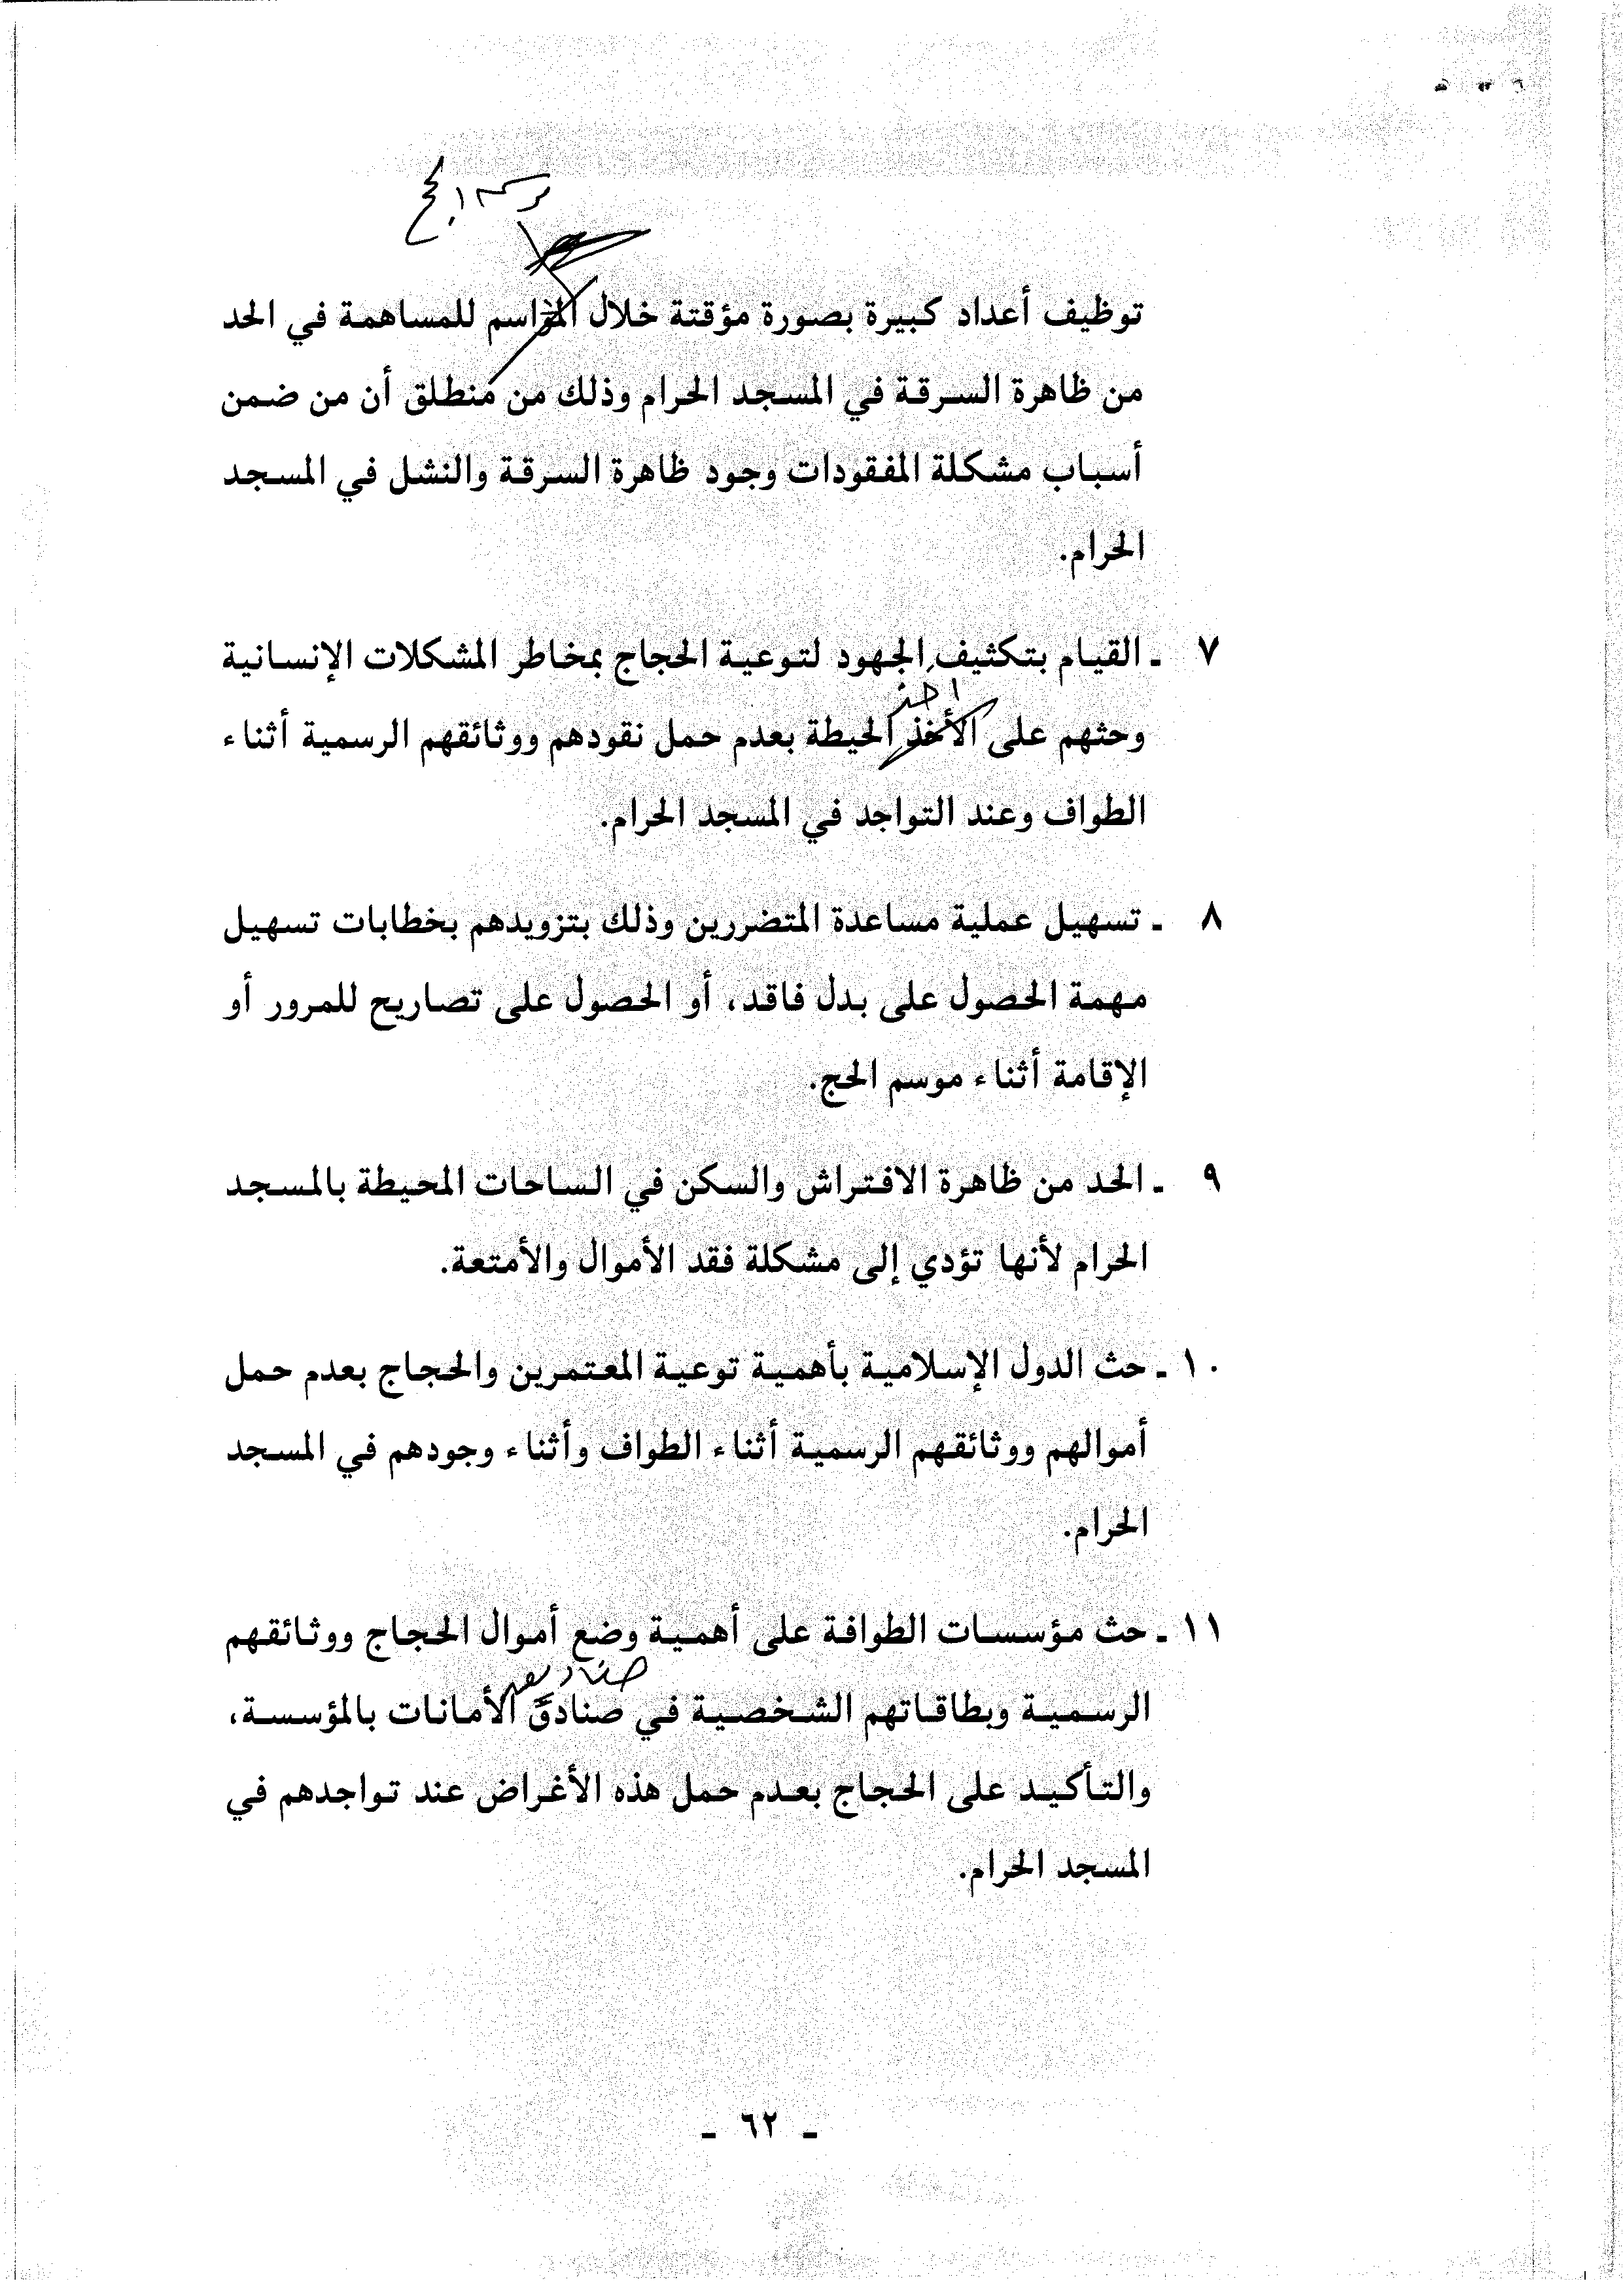 توظيف أعداد كبيرة بصورة مؤقتة خلال المواسم للمساهمة في الحد
من ظاهرة السرقة في المسجد الحرام وذلك من منطلق أن من ضمن
أسباب مشكلة المفقودات وجود ظاهرة السرقة والنشل في المسجد
الحرام.
٧ ـ القيام بتكثيف الجهود لتوعية الحجاج بمخاطر المشكلات الإنسانية
وحثهم على الأخذ الحيطة بعدم حمل نقودهم ووثائقهم الرسمية أثناء
الطواف وعند التواجد في المسجد الحرام.
٨ ـ تسهيل عملية مساعدة المتضررين وذلك بتزويدهم بخطابات تسهيل
مهمة الحصول على بدل فاقد، أو الحصول على تصاريح للمرور أو
الإقامة أثناء موسم الحج.
٩ ـ الحد من ظاهرة الافتراش والسكن في الساحات المحيطة بالمسجد
الحرام لأنها تؤدي إلى مشكلة فقد الأموال والأمتعة.
١٠ ـ حث الدول الإسلامية بأهمية توعية المعتمرين والحجاج بعدم حمل
أموالهم ووثائقهم الرسمية أثناء الطواف وأثناء وجودهم في المسجد
الحرام.
١١ ـ حث مؤسسات الطوافة على أهمية وضع أموال الحجاج ووثائقهم
صناديق
الرسمية وبطاقاتهم الشخصية في صنادق الأمانات بالمؤسسة،
والتأكيد على الحجاج بعدم حمل هذه الأغراض عند تواجدهم في
المسجد الحرام.
ـ ٦٢ ـ